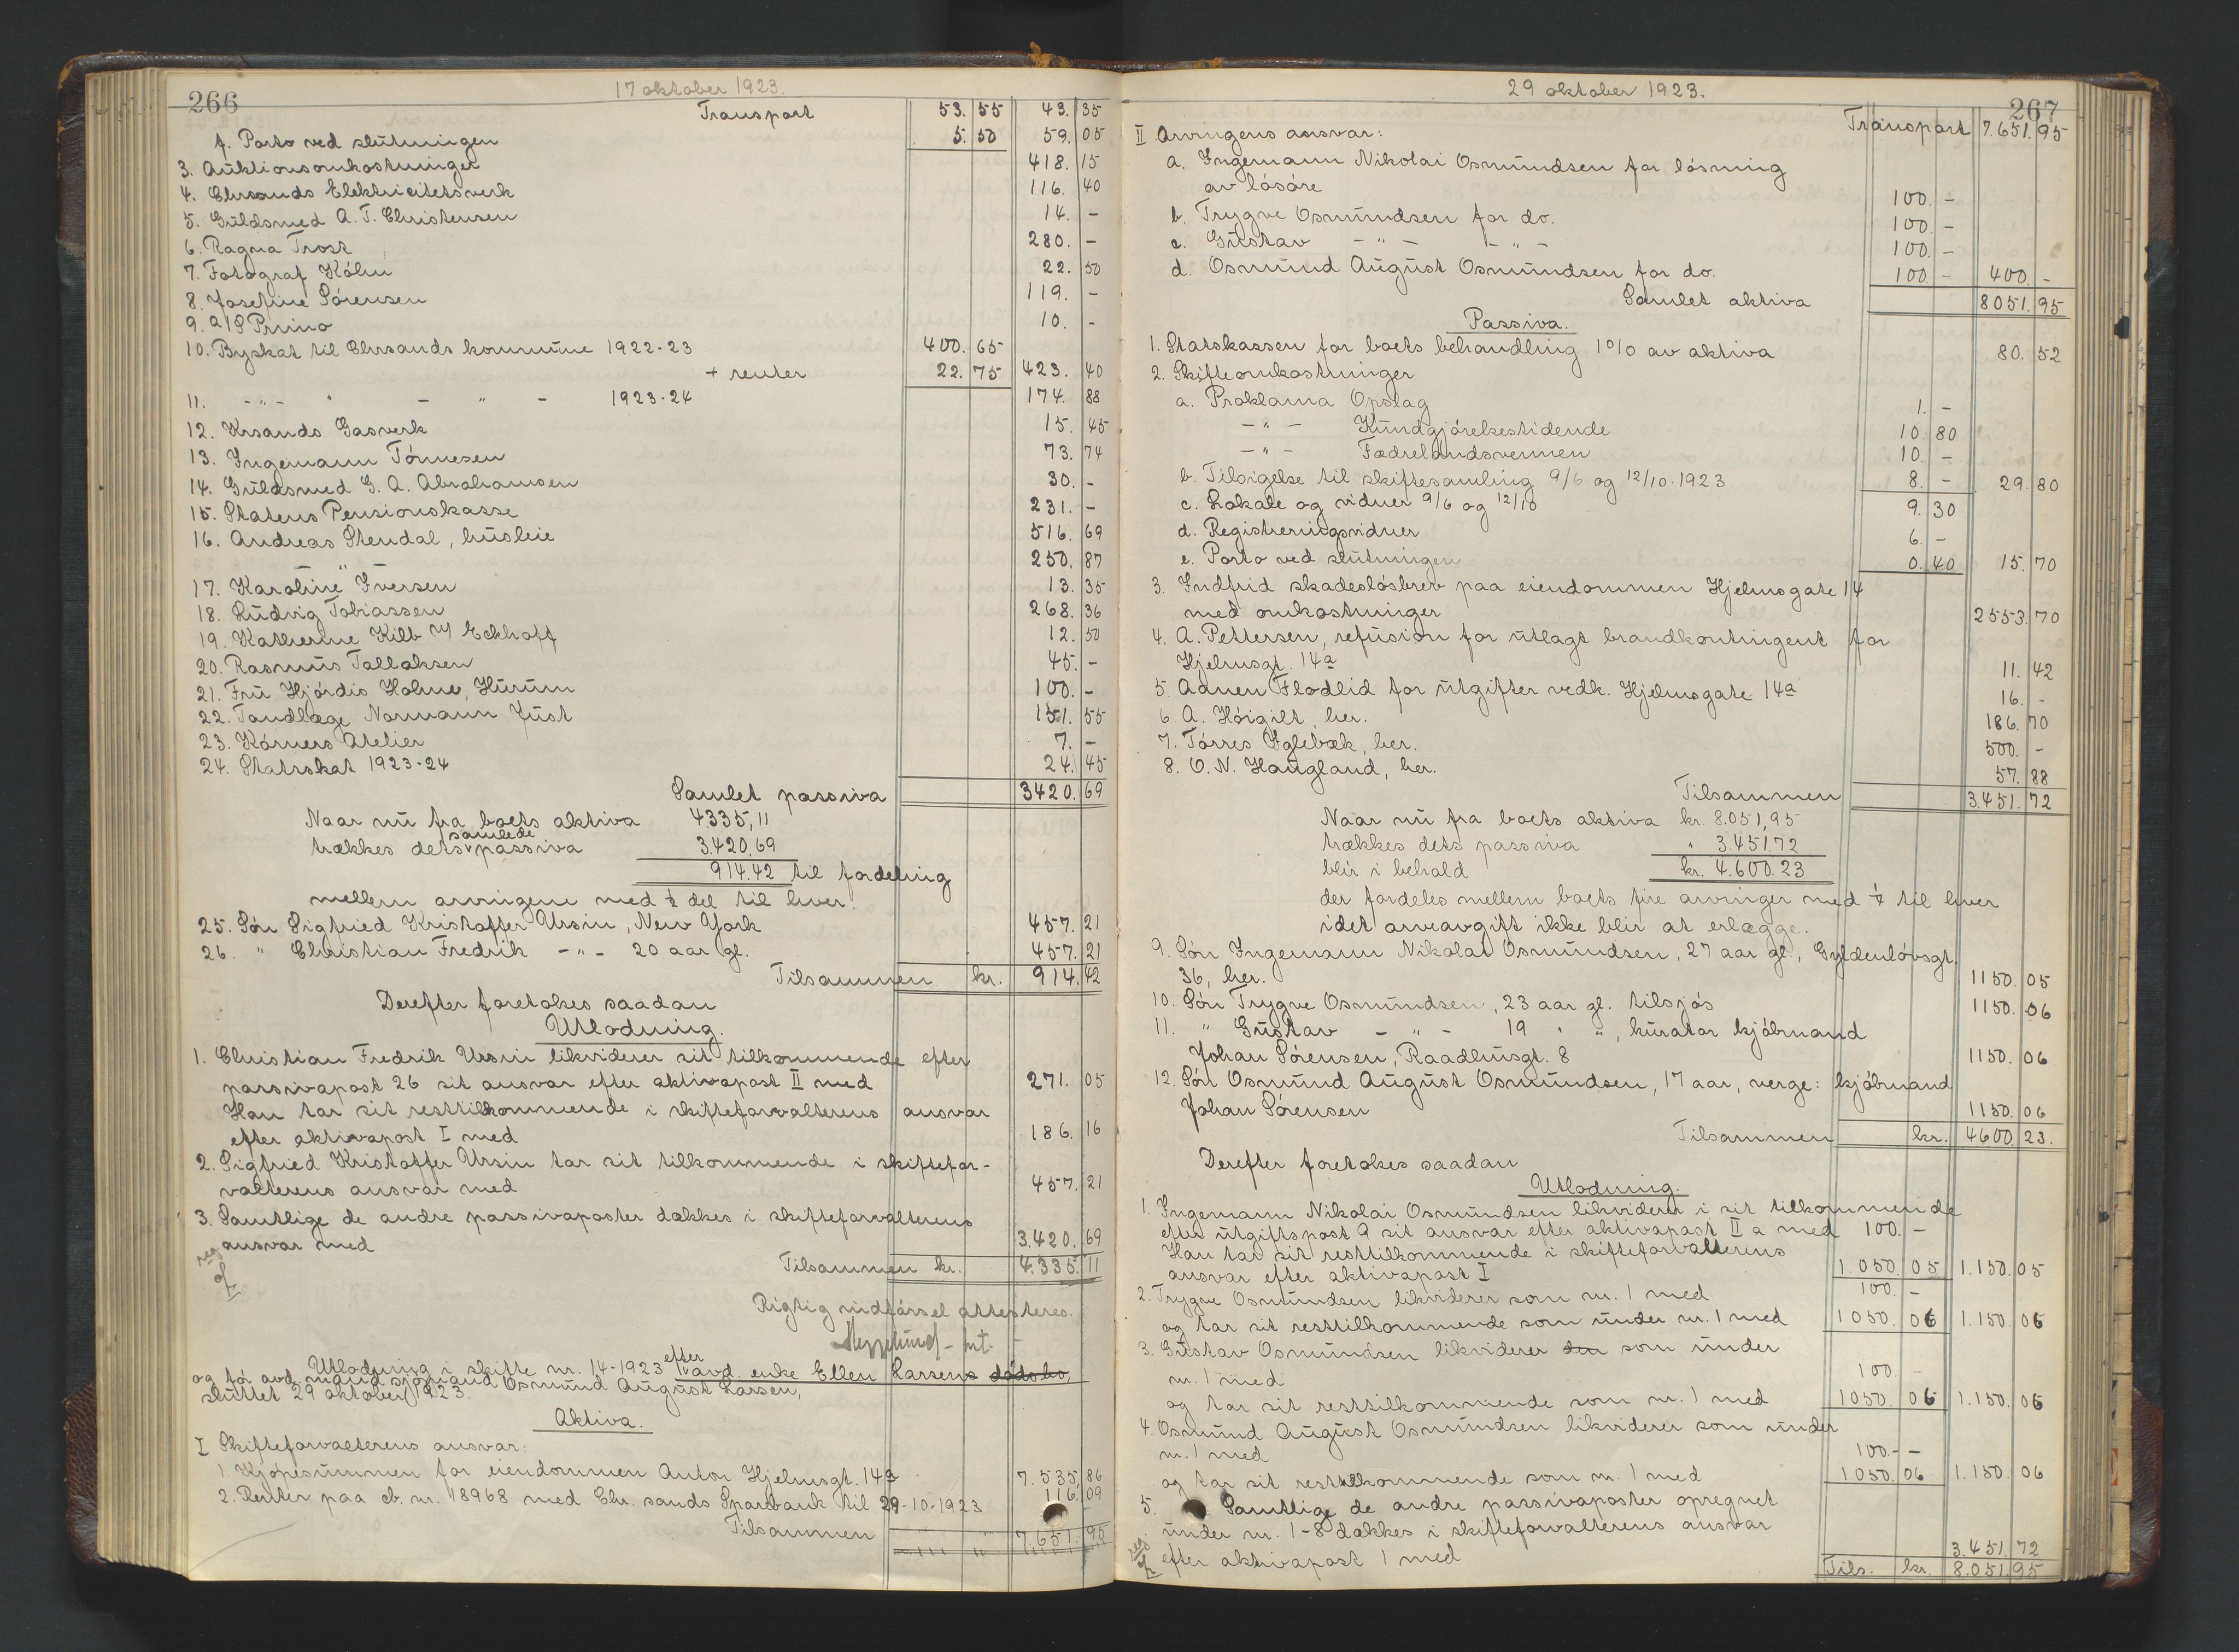 266
17 oktober 1923.
Transport 53.55 43.35
f. Porto ved slutningen 5.50 59.05
3. Auktionsomkostninger 418.15
4. Chrsands Elektricitetsverk 116.40
5. Guldsmed A. T. Christensen 14.-
6. Ragna Trost 280.-
7. Fotograf Köhn 22.50
8. Josefine Sörensen 119.-
9. a/s Primo 10.-
10. Byskat til Chrsands kommune 1922-23 400.65
+ renter 22.75 423.40
11. -"- " - " - 1923-24 174.88
12. Krsands Gasverk 15.45
13. Ingemann Tönnesen 73.74
14. Guldsmed G. A. Abrahamsen 30.-
15. Statens Pensionskasse 231.-
16. Andreas Stendal, husleie 516.69
" 250.87
17. Karoline Iversen 13.35
18. Ludvig Tobiassen 268.36
19. Katherine Kilb m/ Eckhoff 12.50
20. Rasmus Tallaksen 45.-
21. Fru Hjördis Holme, Hurum 100.-
22. Tandlæge Normann Just 151.55
23. Körners Atelier 7.-
24. Statsskat 1923-24 24.45
Samlet passiva 3420.69
Naar nu fra boets aktiva 4335,11
trækkes dets samlede passiva 3.420,69
914.42 til fordeling
mellem arvingene med ½ del til hver.
25. Sön Sigfried Kristoffer Ursin, New York 457.21
26. " Christian Fredrik -"- 20 aar gl. 457.21
Tilsammen kr. 914.42
Derefter foretokes saadan
Utlodning.
1. Christian Fredrik Ursin likviderer sit tilkommende efter
passivapost 26 sit ansvar efter aktivapost II med 271.05
Han tar sit resttilkommende i skifteforvalterens ansvar
efter aktivapost I med 186.16
2. Sigfried Kristoffer Ursin tar sit tilkommende i skiftefor-
valterens ansvar med 457.21
3. Samtlige de andre passivaposter dækkes i skifteforvalterens
ansvar med 3.420.69
Tilsammen kr. 4.335.11
Rigtig indförsel attesteres.
Utlodning i skifte nr. 14-1923 efter avd. enke Ellen Larsens dödsbo,
og för avd. mand sjömand Osmund August Larsen,
sluttet 29 oktober 1923.
Aktiva.
I Skifteforvalterens ansvar:
1. Kjöpesummen for eiendommen Anton Hjelmsgt. 14a 7.535.86
2. Renter paa cb. nr. 18968 med Chr. sands Sparebank til 29-10-1923 116.09
Tilsammen 7.651.95
267
29 oktober 1923.
Transport 7.651.95
II Arvingens ansvar:
a. Ingemann Nikolai Osmundsen for lösning
av lösöre 100.-
b. Trygve Osmundsen for do. 100.-
c. Gustav -"- -"- 100.-
d. Osmund August Osmundsen for do. 100.- 400.-
Samlet aktiva 8051.95
Passiva.
1. Statskassen for boets behandling 1% av aktiva 80.52
2. Skifteomkostninger
a. Proklama Opslag 1.-
-"- Kundgjörelsestidende 10.80
-"- Fædrelandsvennen 10.-
b. Tilsigelse til skiftesamling 9/6 og 12/10-1923 8.- 29.80
c. Lokale og vidner 9/6 og 12/10 9.30
d. Registreringsvidner 6.-
e. Porto ved slutningen 0.40 15.70
3. Indfrid skadeslösbrev paa eiendommen Hjelmsgate 14
med omkostninger 2553.70
4. A. Pettersen, refusion for utlagt brandkontingent for
Hjelmsgt. 14a 11.42
5. Adnen Flodlid for utgifter vedk. Hjelmsgate 14a 16.-
6. A. Höigilt, her. 186.70
7. Törres Iglebæk, her. 500.-
8. O. N. Haugland, her. 57.88
Tilsammen 3.451.72
Naar nu fra boets aktiva kr. 8.051,95
trækkes dets passiva " 3.451.72
blir i behold kr. 4.600.23
der fordeles mellem boets fire arvinger med ¼ til hver
idet arveavgift ikke blir at erlægge.
9. Sön Ingemann Nikolai Osmundsen, 27 aar gl., Gyldenlövsgt.
36, her. 1150.05
10. Sön Trygve Osmundsen, 23 aar gl. tilsjös 1150.06
11. " Gustav -"- 19 " ", kurator kjöbmand
Johan Sörensen, Raadhusgt. 8 1150.06
12. Sön Osmund August Osmundsen, 17 aar, verge: kjöbmand
Johan Sörensen 1150.06
Tilsammen kr. 4600.23.
Derefter foretokes saadan
Utlodning.
1. Ingemann Nikolai Osmundsen likviderer i sit tilkommende
efter utgiftspost 9 sit ansvar efter aktivapost II a med 100.-
Han tar sit resttilkommende i skifteforvalterens
ansvar efter aktivapost I 1.050.05 1.150.05
2. Trygve Osmundsen likviderer som nr. 1 med 100.-
og tar sit resttilkommende som under nr. 1 med 1050.06 1.150.06
3. Gustav Osmundsen likviderer den som under
nr. 1 med 100.-
og tar sit resttilkommende som nr. 1 med 1050.06 1.150.06
4. Osmund August Osmundsen likviderer som under
nr. 1 med 100.-
og tar sit resttilkommende som nr. 1 med 1050.06 1.150.06
5. Samtlige de andre passivaposter opregnet
under nr. 1-8 dækkes i skifteforvalterens ansvar
efter aktivapost 1 med 3.451.72
Tils. kr. 8.051.95